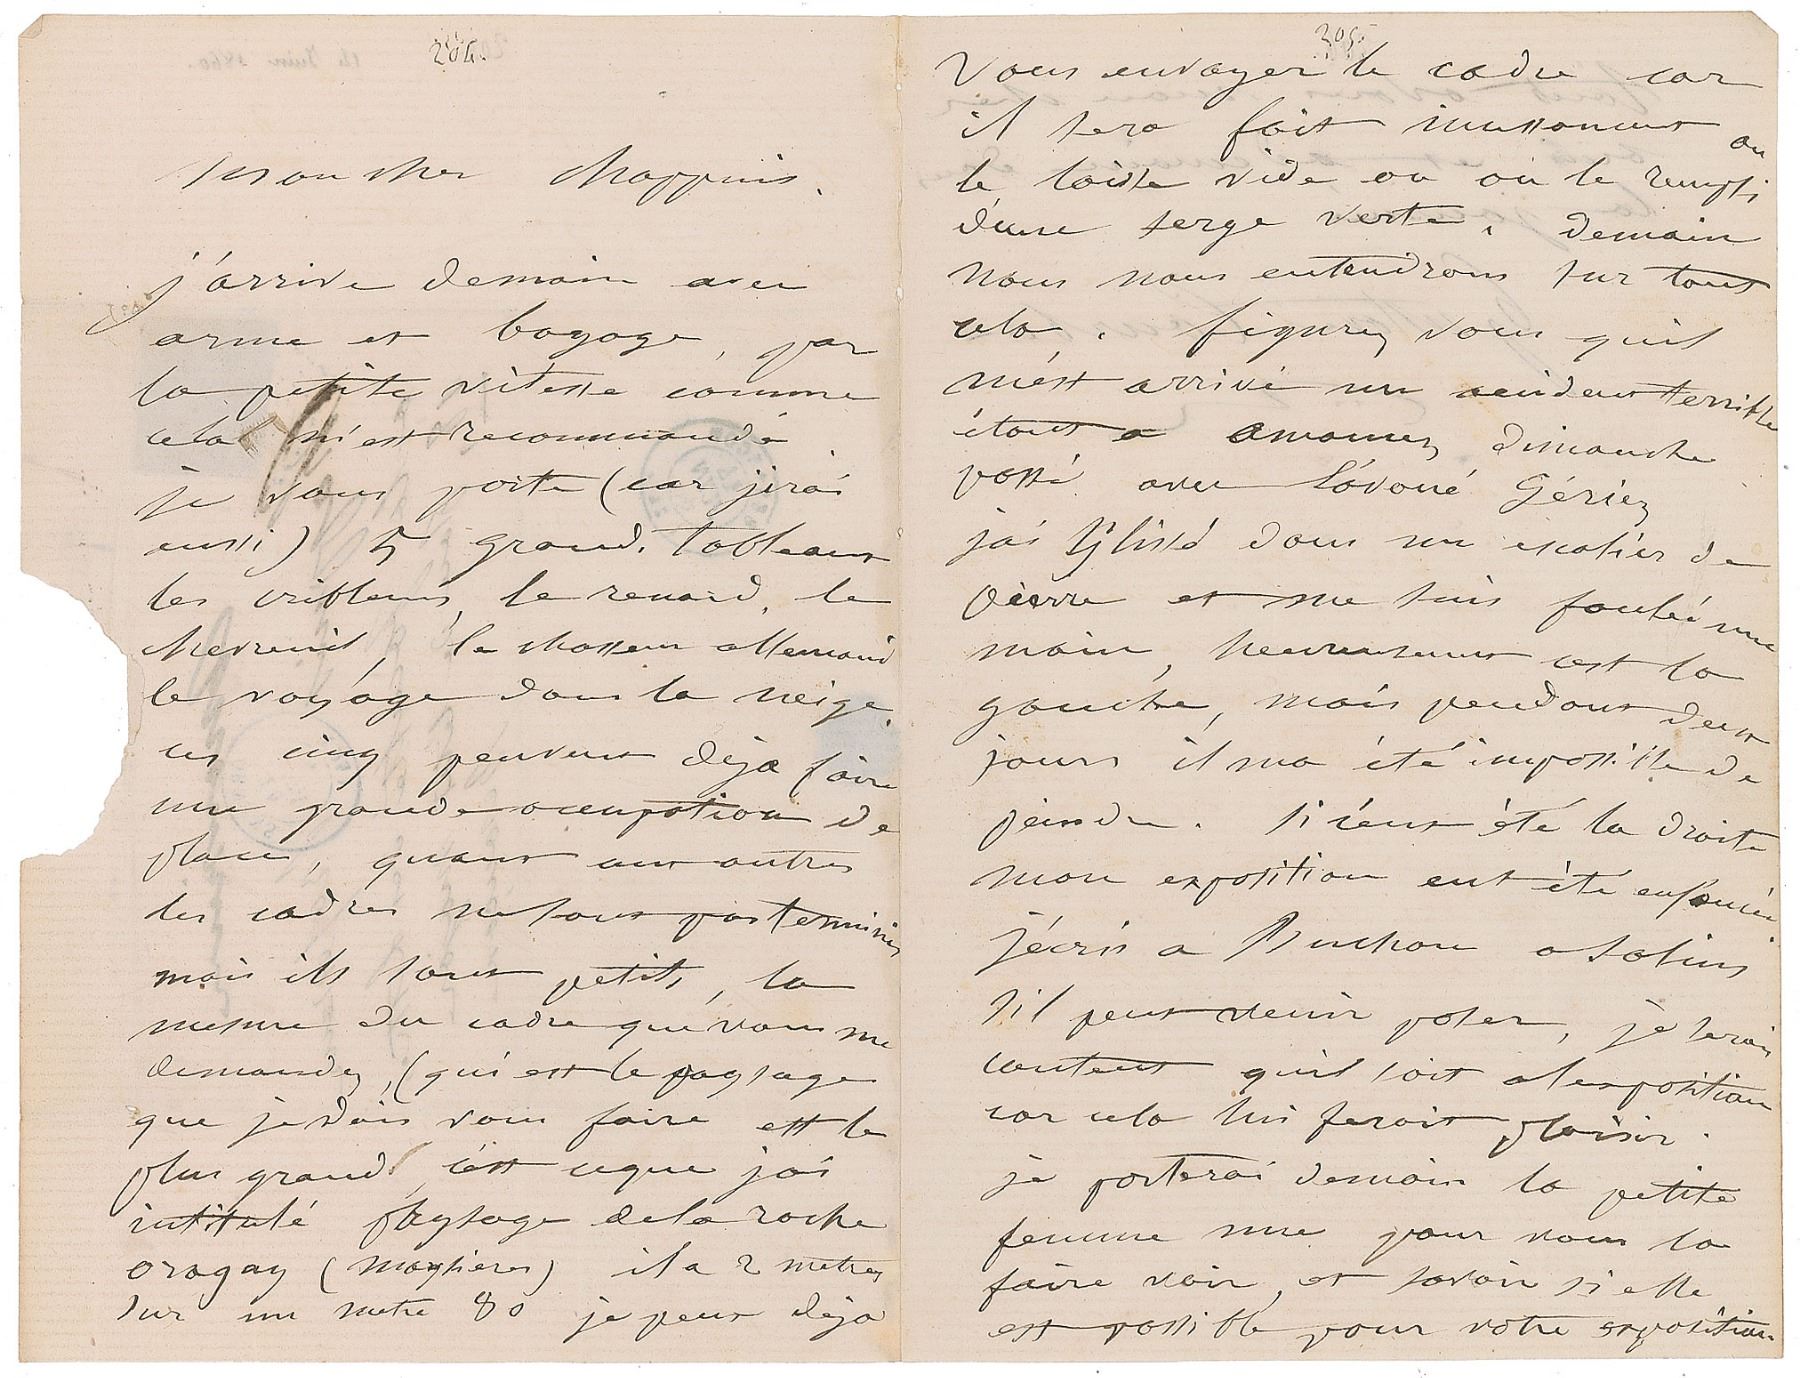 204.
mon cher chappuis.
j'arrive demain avec
arme et bagage, par
la petite vitesse comme
cela m'est recommandé
je vous porte (car j'irai
aussi) 5 grand. Tableaux
les cribleuses, le renard, le
chevreuil, le chasseur allemand
le voyage dans la neige,
ces cinq peuvent déja faire
une grande occupation de
place, quant aux autres
les cadres ne sont pas terminés
mais ils sont petits, la
mesure du cadre que vous me
demandez, (qui est le paysage
que je dois vous faire est le
plus grand, c'est ceque jai
intitulé paysage dela roche
oragay (maysières) il a 2 metres
sur un metre 80 je peux déja
205.
vous envoyer le cadre car
il sera fait incessament on
le laisse vide ou on le rempli
d'une serge verte. demain
nous nous entendrons sur tout
cela. figurez vous quil
m'est arrivé un accident terrible
étant a amancey dimanche
passé avec l'avoué Gériez
jai glissé dans un escalier de
pierre et me suis foulé une
main, heureusement cest la
gauche, mais pendant deux
jours il ma été impossible de
peindre. si c'eut été la droite
mon exposition eut été enfoncée
j'écris a Buchon a salins
sil peut venir poser, je serais
content quil soit alexposition
car cela lui ferait plaisir.
je porterai demain la petite
femme nue pour vous la
faire voir, et savoir si elle
est possible pour votre exposition